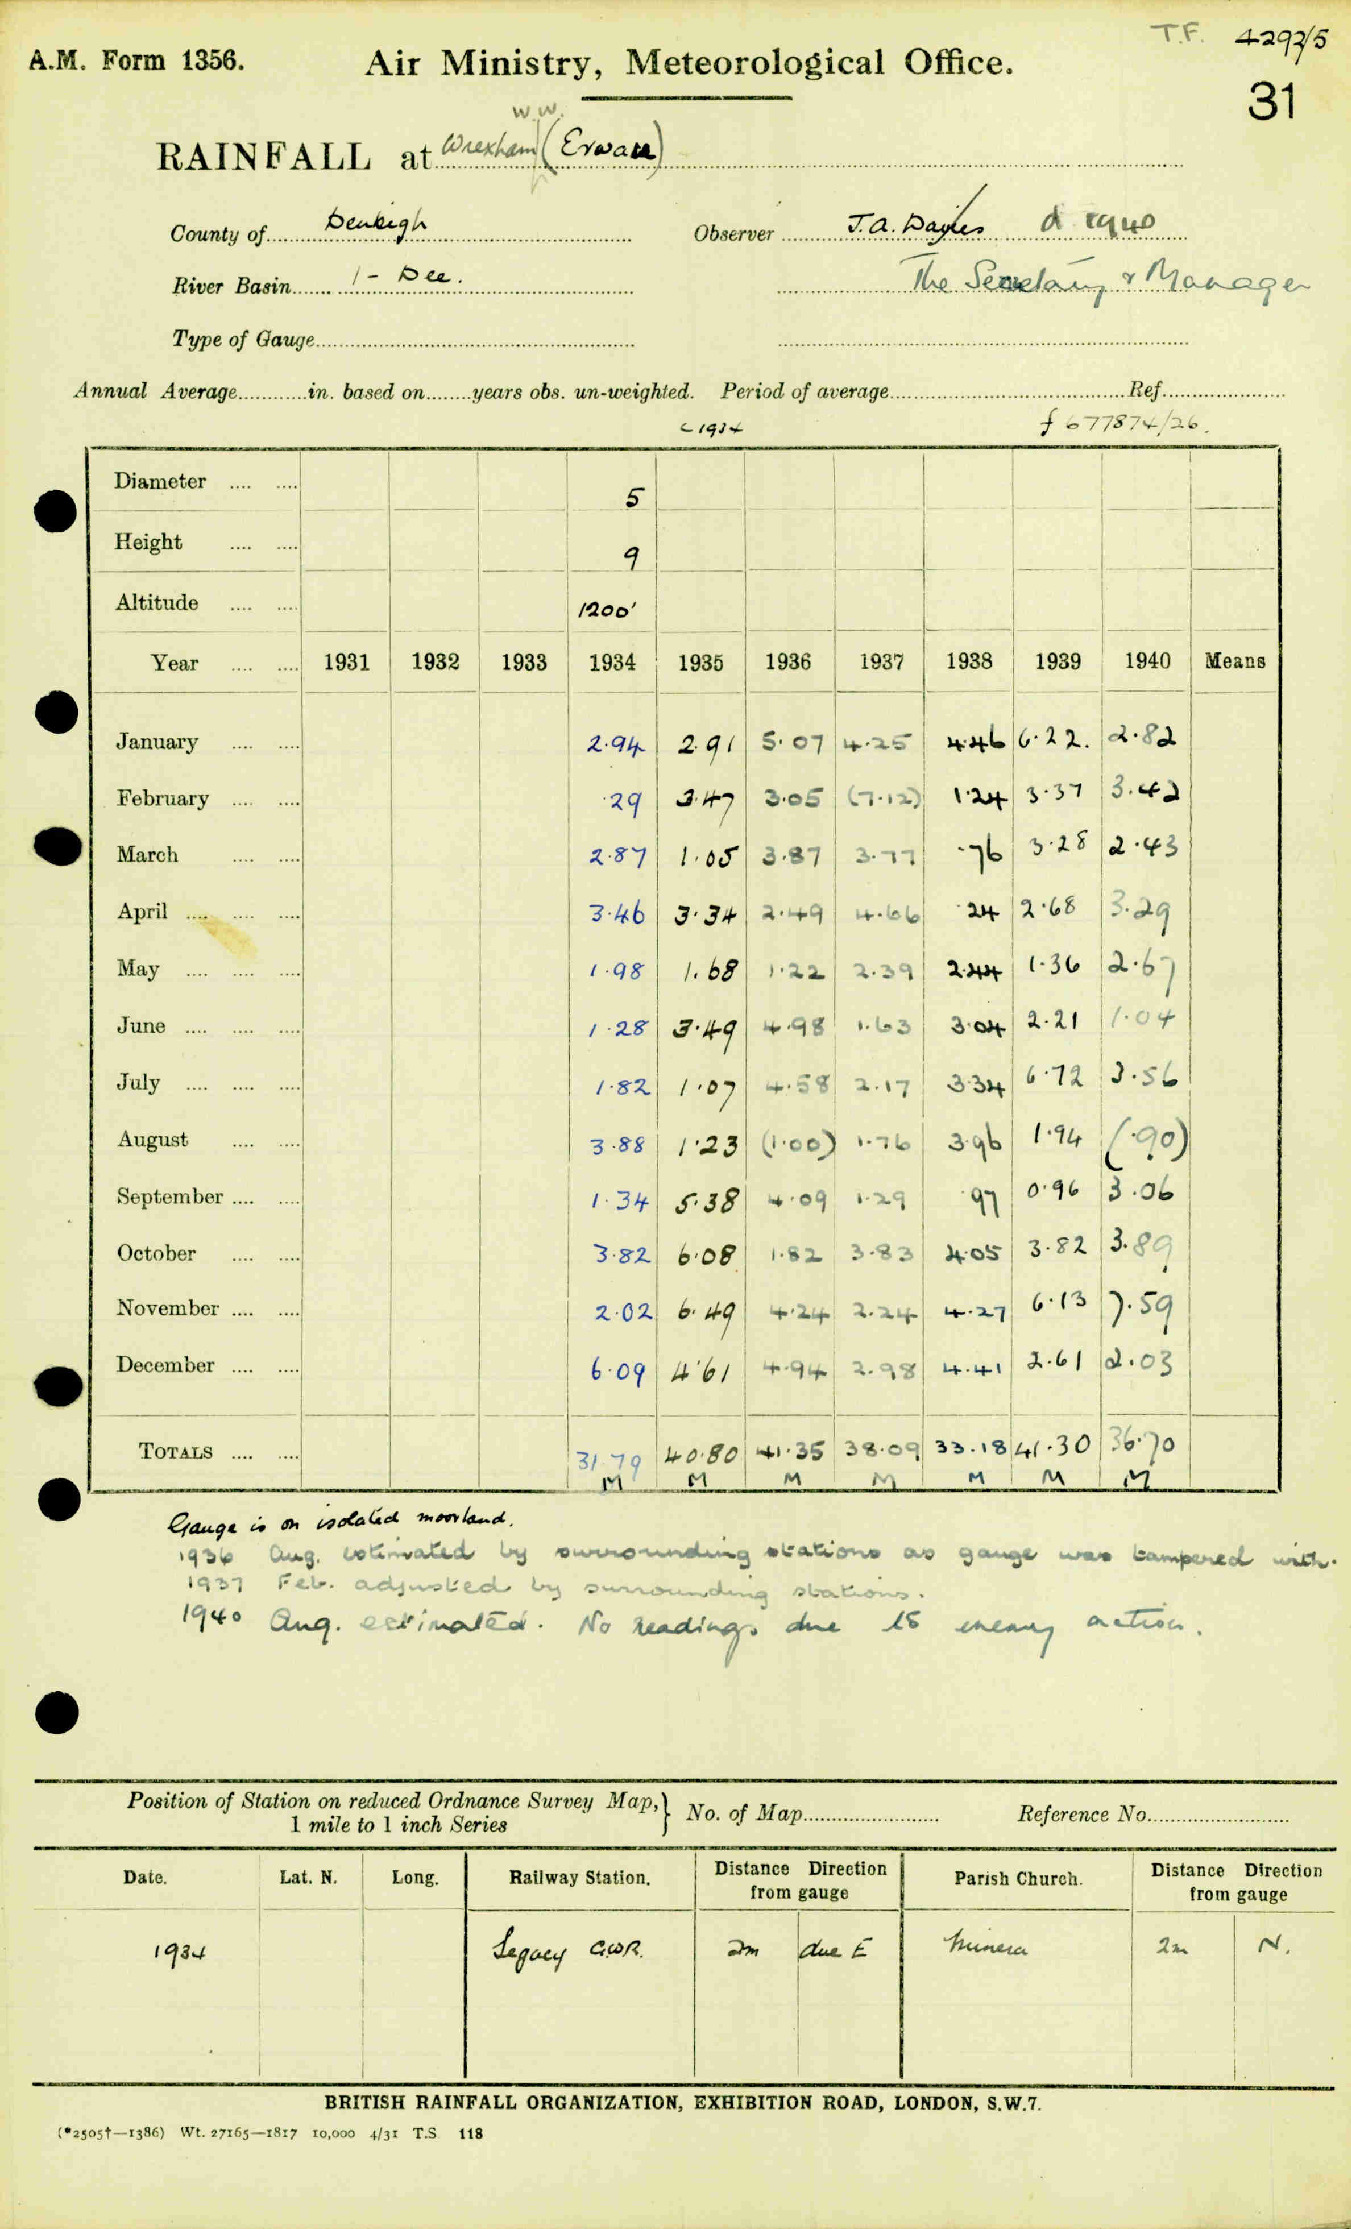 T.F. 4292/5
A.M. Form 1356. Air Ministry, Meteorological Office.
31
W.W.
RAINFALL at Wrexham (Erwau)
County of Denbigh Observer J.A. Davies d 1940
River Basin 1 - Dee. The Secretary & Manager
Type of Gauge
Annual Average in. based on years obs. un-weighted. Period of average Ref.
1934 f 677874/26.
Diameter 5
Height 9
Altitude 1200'
Year 1931 1932 1933 1934 1935 1936 1937 1938 1939 1940 Means
January 2.94 2.91 5.07 4.25 4.46 6.22. 2.82
February .29 3.47 3.05 (7.12) 1.24 3.37 3.42
March 2.87 1.05 3.87 3.77 .76 3.28 2.43
April 3.46 3.34 2.49 4.66 .24 2.68 3.29
May 1.98 1.68 1.22 2.39 2.44 1.36 2.67
June 1.28 3.49 4.98 1.63 3.04 2.21 1.04
July 1.82 1.07 4.58 2.17 3.34 6.72 3.56
August 3.88 1.23 (1.00) 1.76 3.96 1.94 (.90)
September 1.34 5.38 4.09 1.29 .97 0.96 3.06
October 3.82 6.08 1.82 3.83 4.05 3.82 3.89
November 2.02 6.49 4.24 2.24 4.27 6.13 7.59
December 6.09 4.61 4.94 2.98 4.41 2.61 2.03
TOTALS 31.79 40.80 41.35 38.09 33.18 41.30 36.70
M M M M M M M
Gauge is on isolated moorland.
1936 Aug. estimated by surrounding stations as gauge was tampered with.
1937 Feb. adjusted by surrounding stations.
1940 Aug. estimated. No readings due to enemy action.
Position of Station on reduced Ordnance Survey Map, 1 mile to 1 inch Series } No. of Map Reference No.
Date. Lat. N. Long. Railway Station. Distance Direction from gauge Parish Church. Distance Direction from gauge
1934 Legacy G.W.R. 2m due E Minera 2m N.
BRITISH RAINFALL ORGANIZATION, EXHIBITION ROAD, LONDON, S.W.7.
(*2505†—1386) Wt. 27165—1817 10,000 4/31 T.S 118